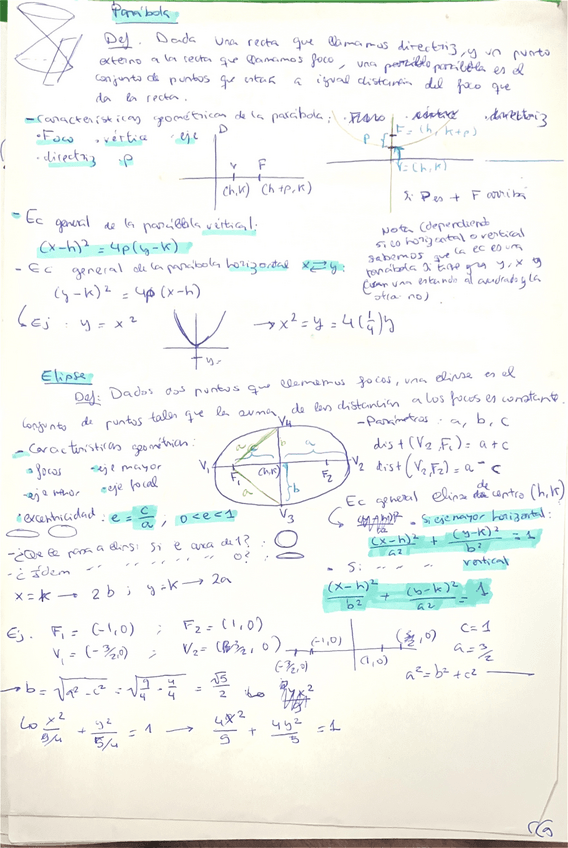 Parábola
Def. Dada una recta que llamamos directriz, y un punto
externo a la recta que llamamos foco, una parábola es el
conjunto de puntos que están a igual distancia del foco que
de la recta.
- Características geométricas de la parábola:
· Foco · vértice · eje
· directriz · p
D
V F
(h,k) (h+p,k)
p F=(h,k+p)
V=(h,k)
Si P es + F arriba
- Ec general de la parábola vertical:
(x-h)² = 4p(y-k)
- Ec general de la parábola horizontal x⇄y:
(y-k)² = 4p(x-h)
Nota (dependiente
si es horizontal o vertical
sabemos que la ec es una
parábola si tiene y, x
una estando al cuadrado y la
otra no)
Ej: y = x²
→ x² = y = 4(1/4)y
Elipse
Def: Dados dos puntos que llamamos focos, una elipse es el
conjunto de puntos tales que la suma de las distancias a los focos es constante.
- Características geométricas:
· focos · eje mayor
· eje menor · eje focal
· excentricidad: e = c/a, 0<e<1
V4
V1 F1 (h,k) F2 V2
a c b
V3
- Parámetros: a, b, c
dist(V2,F1) = a+c
dist(V2,F2) = a-c
Ec general elipse de centro (h,k)
· Si eje mayor horizontal:
(x-h)²/a² + (y-k)²/b² = 1
· Si " " " vertical
(x-h)²/b² + (y-k)²/a² = 1
- ¿Qué le pasa a elipsi si e a cerca de 1?:
- ¿ Ídem " " " " " 0?:
x=h → 2b ; y=k → 2a
Ej. F1 = (-1,0) ; F2 = (1,0)
V1 = (-3/2,0) ; V2 = (3/2,0)
(-1,0) (3/2,0)
(-3/2,0) (1,0)
c=1
a=3/2
a² = b² + c²
→ b = √(a²-c²) = √(9/4 - 4/4) = √5/2
x²/9/4 + y²/5/4 = 1 → 4x²/9 + 4y²/5 = 1